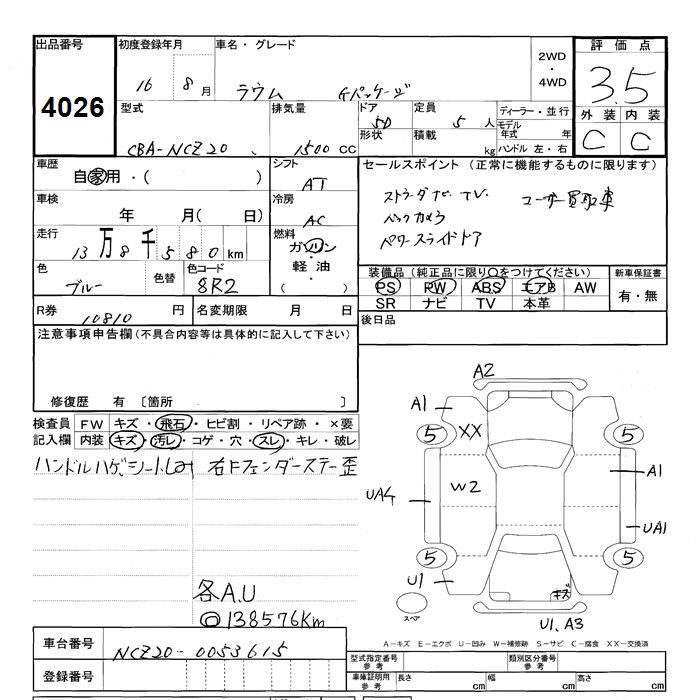 出品番号 初度登録年月 車名・グレード
4026 16 8月 ラウム Gパッケージ 2WD・4WD
評価点
3.5
型式 排気量 ドア 定員 ディーラー・並行
CBA-NCZ20 1500cc 5D 5人 モデル年式 年
形状 積載 kg ハンドル 左・右
外装 内装
C C
車歴 自家用・( ) シフト AT
セールスポイント(正常に機能するものに限ります)
車検 年 月( 日) 冷房 AC
ストラーダナビ TV. ユーザー買取車
バックカメラ
パワースライドドア
走行 13万8千580km 燃料 ガソリン・軽油・( )
色 ブルー 色替 色コード 8R2
装備品(純正品に限り○をつけてください) 新車保証書
PS PW ABS エアB AW 有・無
SR ナビ TV 本革
R券 10810円 名変期限 月 日
後日品
注意事項申告欄(不具合内容等は具体的に記入して下さい)
修復歴 有 〔箇所 〕
検査員記入欄 FW キズ・飛石・ヒビ割・リペア跡・×要
内装 キズ・汚レ・コゲ・穴・スレ・キレ・破レ
ハンドルハゲ、シートしみ 右Fフェンダーステー歪
各A.U
◎138576Km
A2
A1
5 XX 5
W2 A1
UA4 UA1
5 5
U1 キズ
スペア
U1、A3
A−キズ E−エクボ U−凹み W−補修跡 S−サビ C−腐食 XX−交換済
車台番号 NCZ20-0053615
登録番号
型式指定番号 参考 類別区分番号 参考
車庫証明用 参考 長さ cm 幅 cm 高さ cm